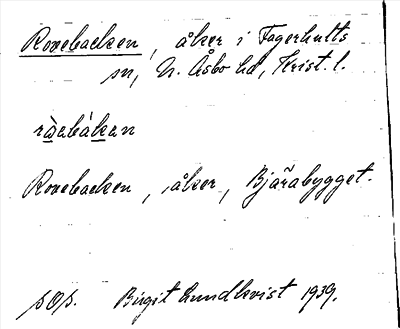 Ronebacken, åker i Fagerhults
sn, N. Åsbo hd, Krist. l.
Ronebacken, åker, Bjärabygget.
Birgit Lundkvist 1939.